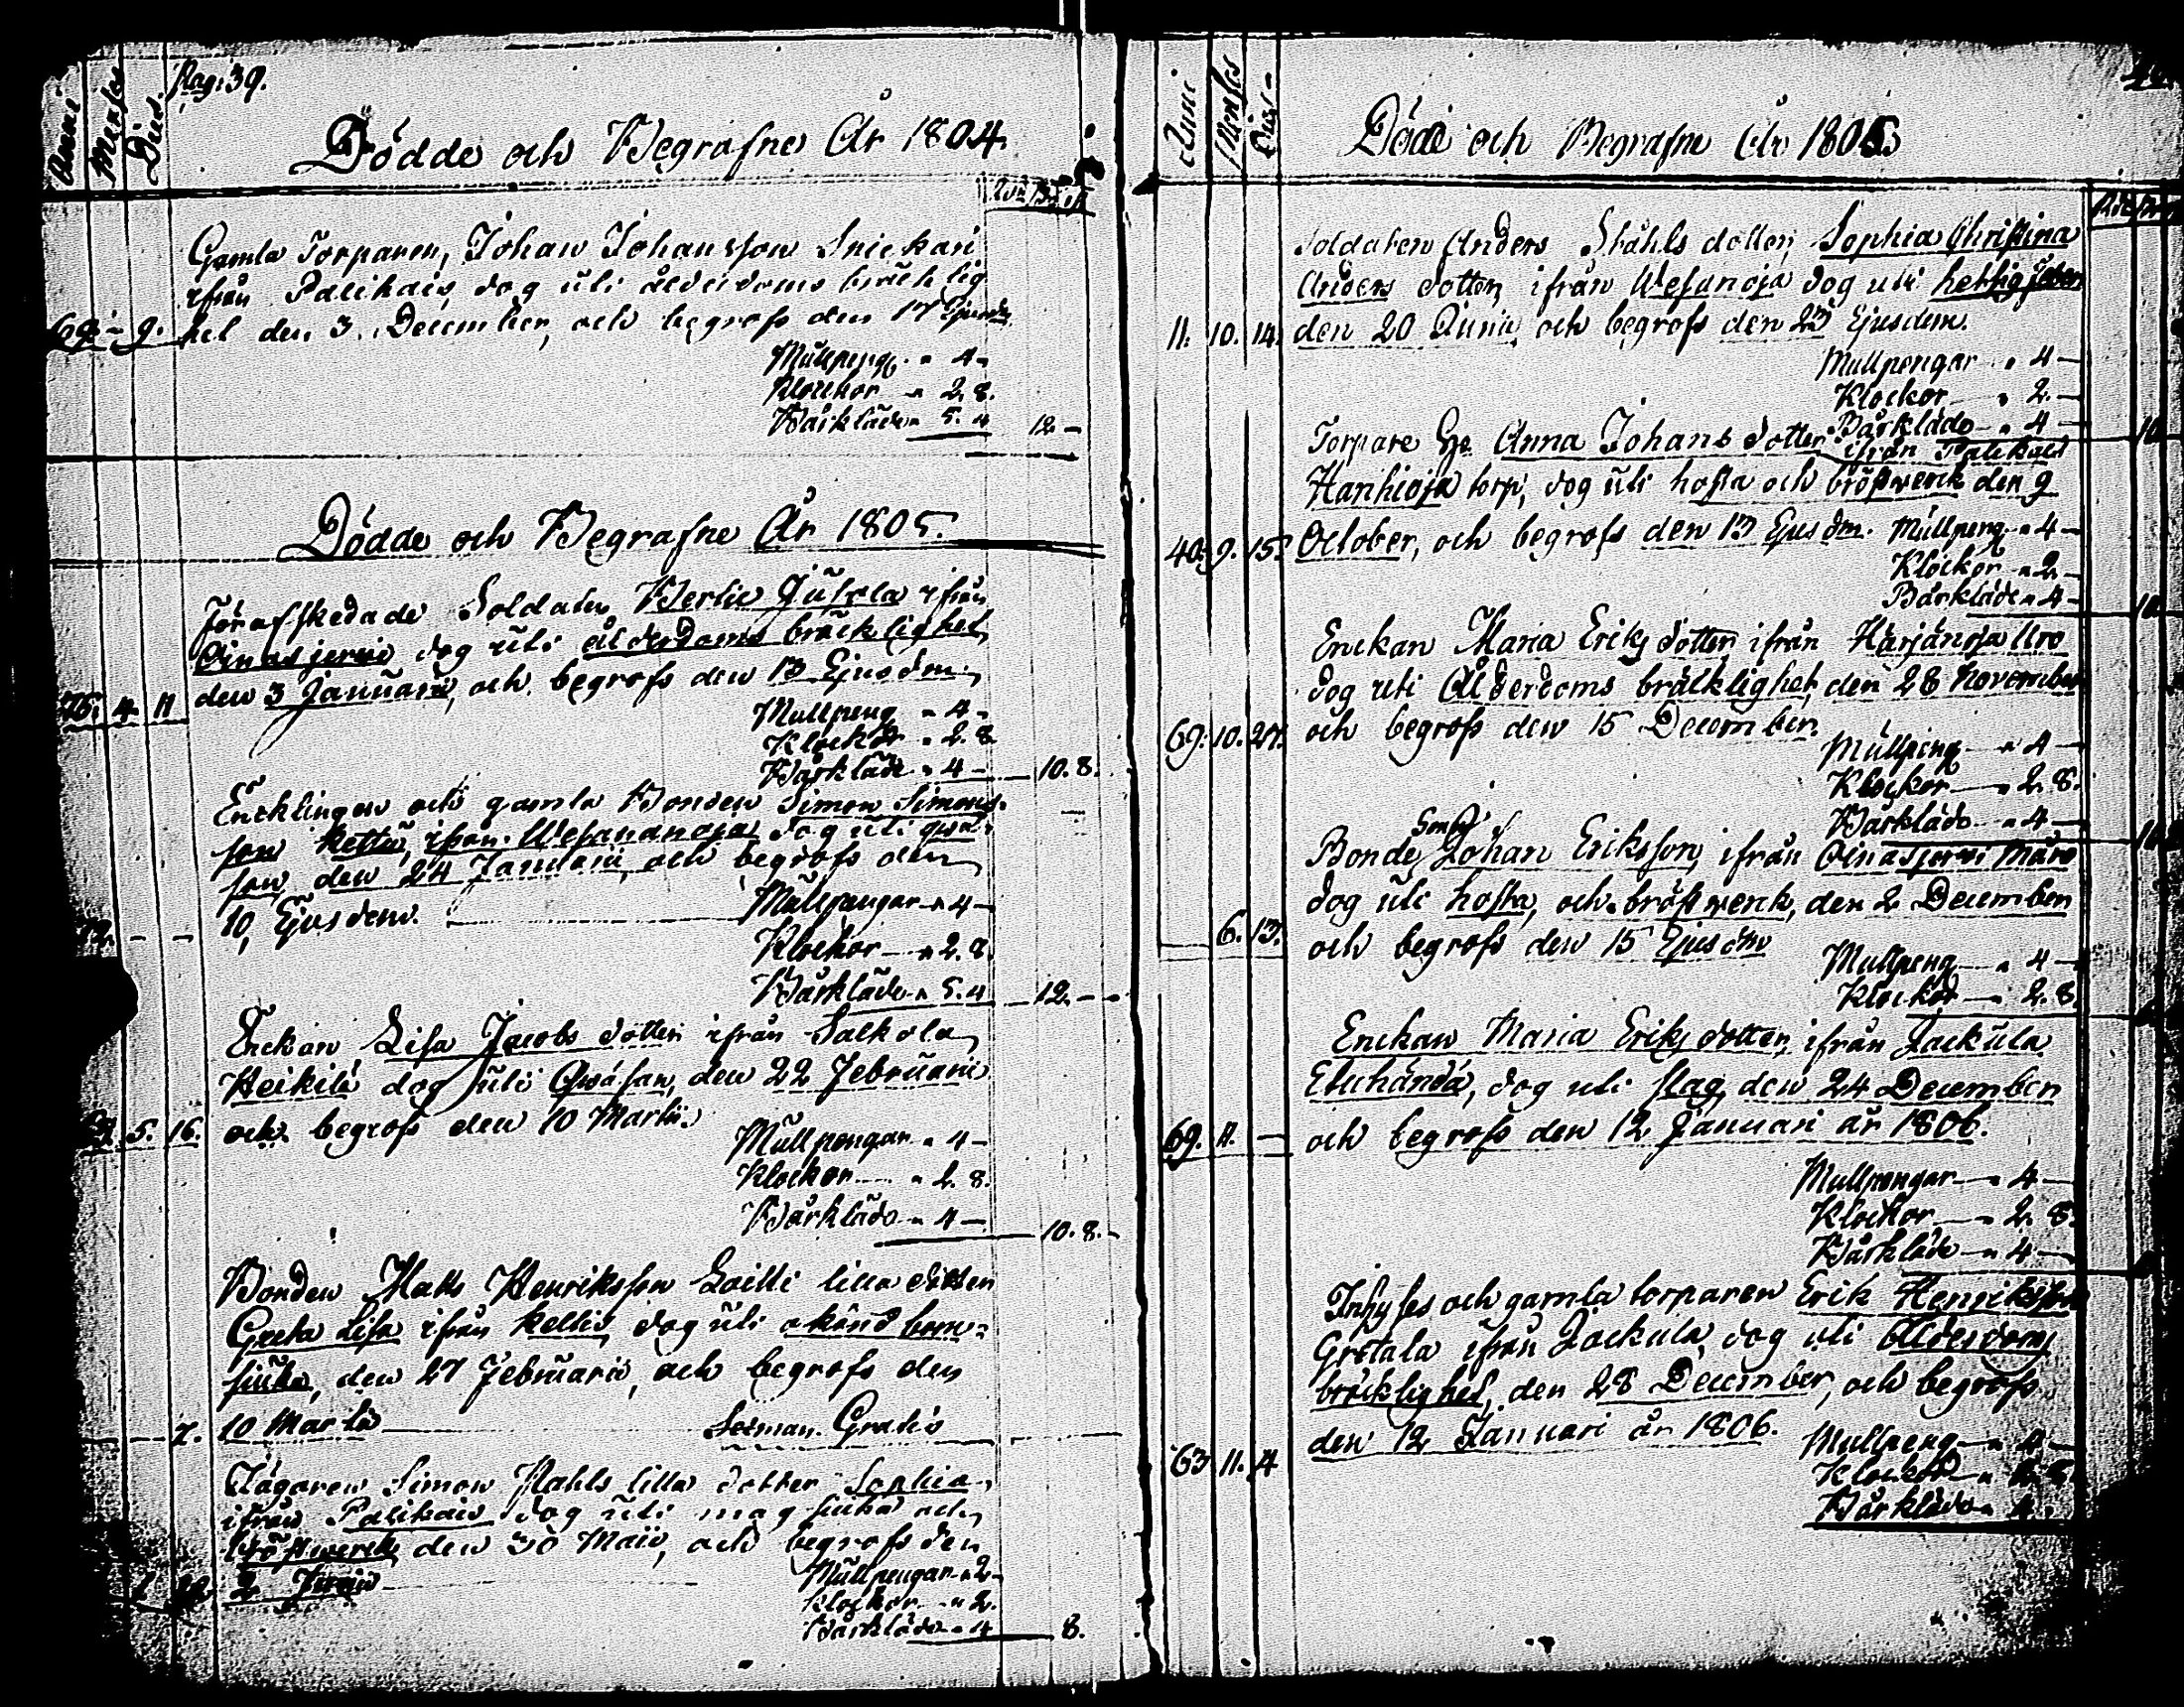 Pag: 39.
Anni Menses Dies.
Dödde och Begrafne År 1804.
Gamla Torparen, Johan Johansson Snickari
ifrån Palikais, dog uti ålderdoms bräcklig
69. - 9. het den 3. December, och begrofs den 17 Ejusdm.
Mullpeng. " 4 -
Klockor " 2. 8.
Bårkläde " 5. 4 12. -
Dödde och Begrafne År 1805.
Förafskedade Soldaten Bertil Jutila ifrån
Oinasjerwi dog uti ålderdoms bräcklighet,
76. 4. 11 den 3 Januarii, och begrofs den 13 Ejusdm.
Mullpeng " 4 -
Klockor " 2. 8.
Bårkläde " 4 - 10. 8.
Encklingen och gamla Bonden Simon Simons-
son Kettu, ifrån Wesananoja dog uti
den 24 Januarii, och begrofs den
10, Ejusdem. Mullpengar " 4 -
Klockor " 2. 8.
Bårkläde " 5. 4 12. -
Enckan Lisa Jacobs dotter ifrån Salkola
Heikilä dog uti den 22 Februarii
5. 16. och begrofs den 10 Martii.
Mullpengar " 4 -
Klockor " 2. 8.
Bårkläde " 4 - 10. 8. -
Bonden Matts Henriksson lilla dotter
Greta Lisa ifrån Kellis, dog uti okänd barn-
siuka, den 27 Februarii, och begrofs den
7. 10 Martii Gratis
Simon Stahls lilla dotter Sophia
ifrån Palikais dog uti mag siuka och
bröstwerck, den 30 Maii, och begrofs den
2 Junii Mullpengar " 2 -
Klockor " 2.
Bårkläde " 4 8.
Anni Menses Dies
Döde och Begrafne År 1805
Soldaten Anders Ståhls dotter, Sophia Christina
Anders dotter, ifrån Wesunoja dog uti hettsig feber
11. 10. 14. den 20 Junii, och begrofs den 23 Ejusdem.
Mullpengar " 4 -
Klockor " 2. -
Bårkläde " 4 - 10
Torpare Anna Johans dotter ifrån Palikais
Hanhioja torp, dog uti hosta och bröstwerck den 9
40. 9. 15. October, och begrofs den 13 Ejusdm. Mullpeng. " 4 -
Klockor " 2. -
Bårkläde " 4 - 10
Enckan Maria Eriks dotter ifrån Härjänoja Uro
dog uti Ålderdoms bräcklighet, den 28 November
69. 10. 27. och begrofs den 15 December.
Mullpeng " 4 -
Klockor " 2. 8.
Bårkläde " 4 -
Bonde Son Johan Eriksson, ifrån Oinasjerwi
dog uti hosta, och bröstwerck, den 2 December
6. 13. och begrofs den 15 Ejusdm
Mullpeng " 4 -
Klockor " 2. 8.
Enckan Maria Eriks dotter, ifrån Jackula
dog uti slag, den 24 December
69. 11. - och begrofs den 12 Januari år 1806.
Mullpengar " 4 -
Klockor " 2. 8.
Bårkläde " 4 -
Inhyses och gamla torparen Erik Henriksson
Grotala ifrån Jackula, dog uti Ålderdoms
bräcklighet, den 28 December, och begrofs
63 11. 4 den 12 Januari år 1806.
Mullpeng " 4 -
Klockor
Bårkläde " 4 -